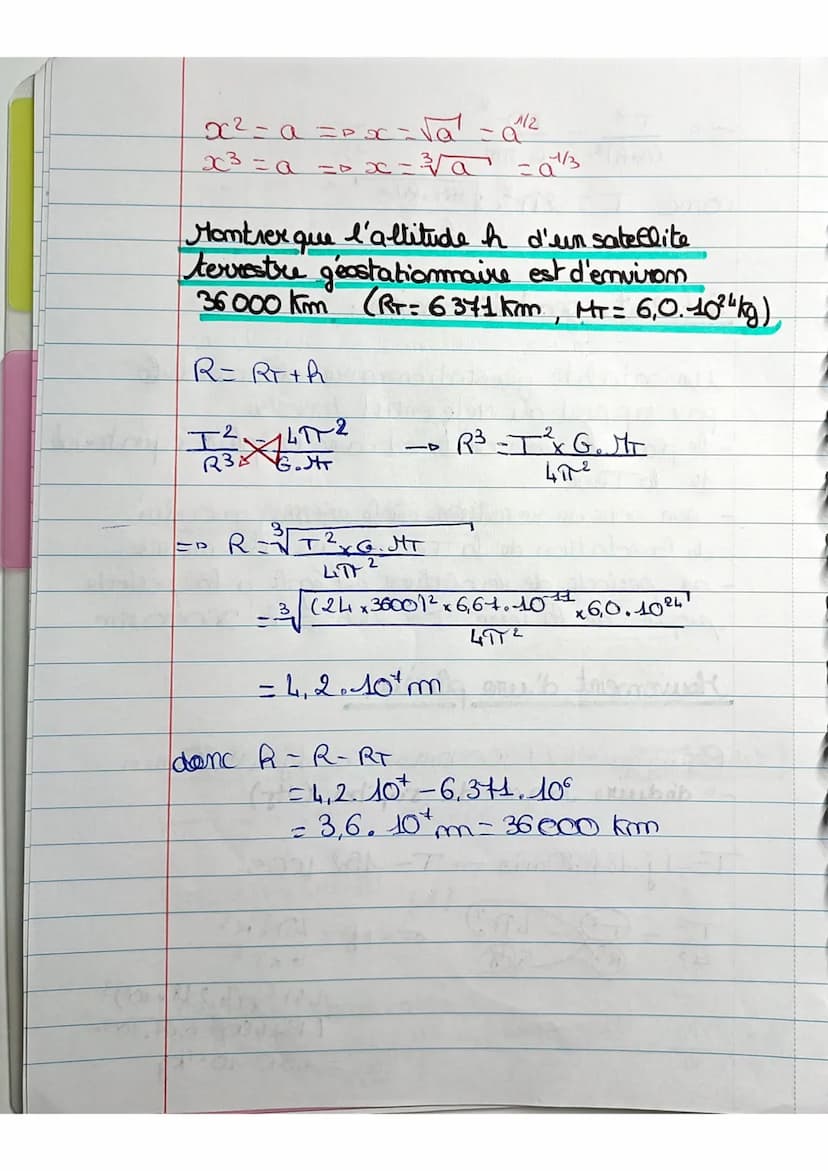 x² = a => x = √a = a^1/2
x³ = a => x = ³√a = a^1/3
Montrer que l'altitude h d'un satellite
terrestre géostationnaire est d'environ
36 000 km (RT = 6 371 km, MT = 6,0.10²⁴ kg)
R = RT + h
T²/R³ = 4π²/G.MT → R³ = T² x G.MT/4π²
=> R = ³√(T² x G.MT/4π²)
= ³√((24 x 3600)² x 6,67.10⁻¹¹ x 6,0.10²⁴/4π²)
= 4,2.10⁷ m
donc h = R - RT
= 4,2.10⁷ - 6,371.10⁶
= 3,6.10⁷ m = 36 000 km